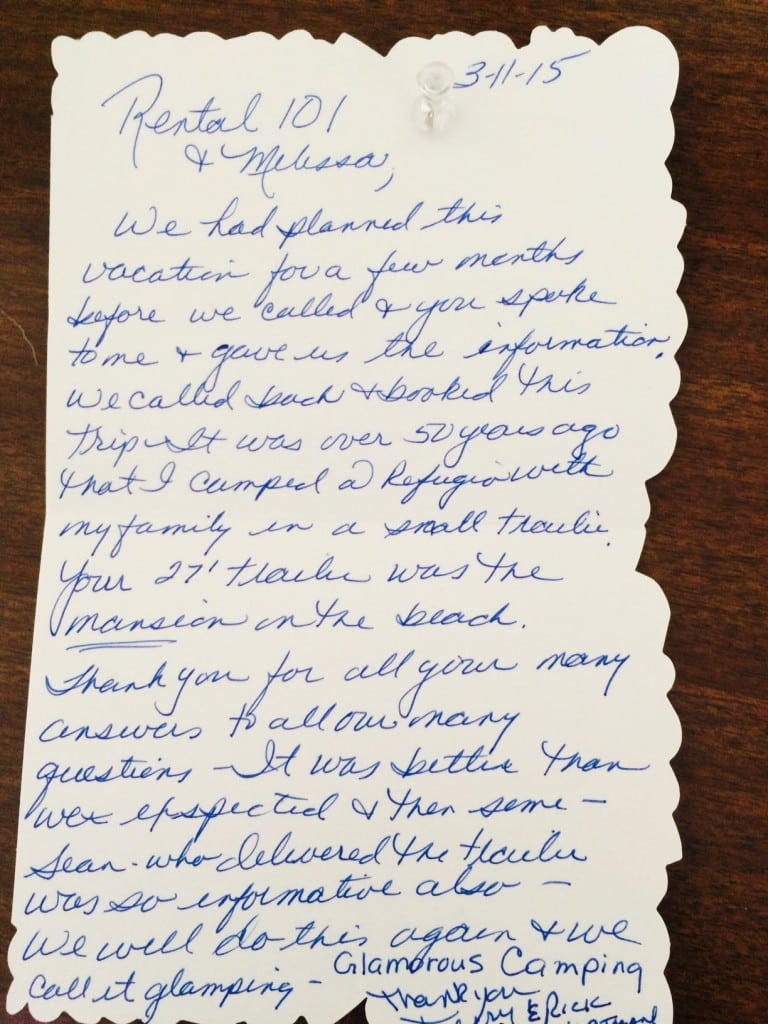 3-11-15
Rental 101
& Melissa,
We had planned this
vacation for a few months
before we called & you spoke
to me & gave us the information.
We called back & booked this
trip - It was over 50 years ago
that I camped @ Refugio with
my family in a small trailer.
Your 27' trailer was the
mansion on the beach.
Thank you for all your many
answers to all our many
questions - It was better than
we exspected & then some -
Sean - who delivered the trailer
was so informative also -
We will do this again & we
call it glamping - Glamorous Camping
Thank you
& Rick